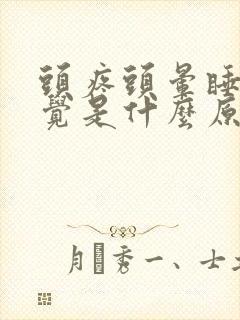 頭疼頭暈睡
覺是什麼原
月秀一、士